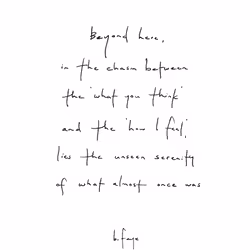 Beyond here,
in the chasm between
the 'what you think'
and the 'how I feel',
lies the unseen serenity
of what almost once was
b.faye